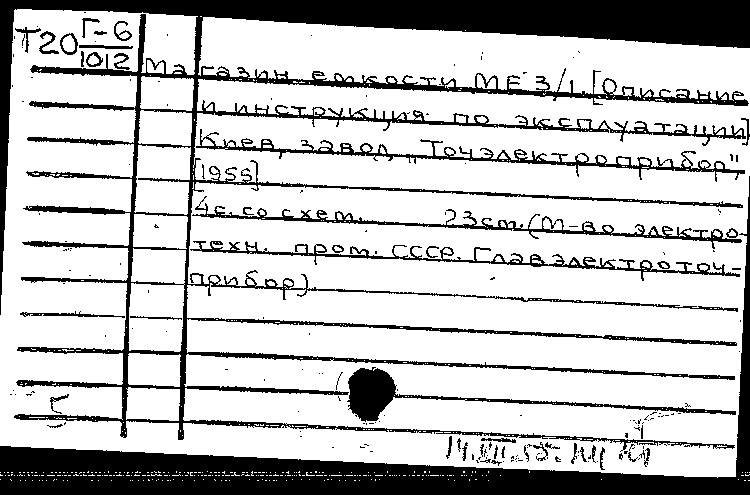 Т20 Г-6
1012
Магазин емкости МЕ 3/1. [Описание
и инструкция по эксплуатации]
Киев, завод "Точэлектроприбор",
[1955]
4с. со схем. 23см. (М-во электро-
техн. пром. СССР. Главэлектроточ-
прибор).
5
14.XII.55.